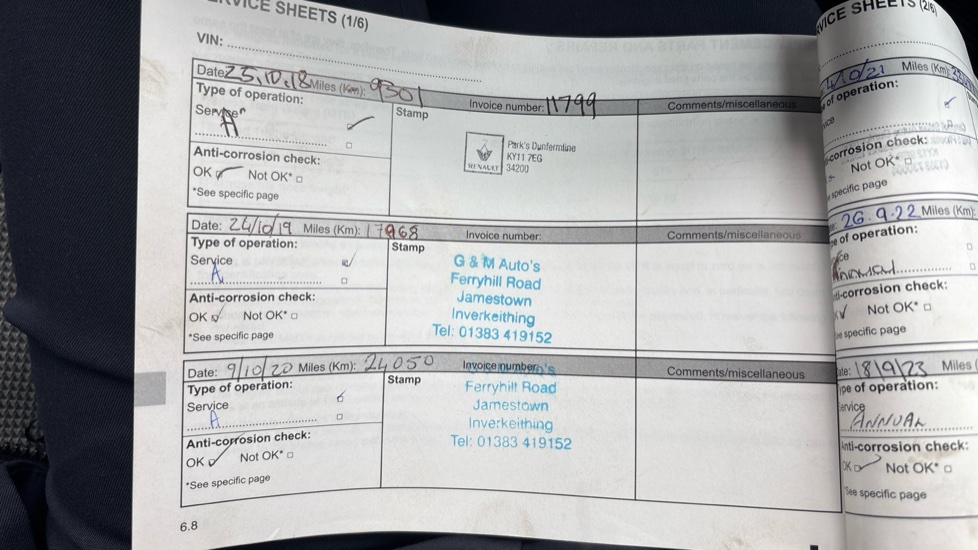 SERVICE SHEETS (1/6)
VIN:
Date: 25.10.18 Miles (Km): 9301 Invoice number: 11799 Comments/miscellaneous
Type of operation:
Stamp
Service
A
Anti-corrosion check:
OK Not OK*
*See specific page
RENAULT
Park's Dunfermline
KY11 7EG
34200
Date: 24/10/19 Miles (Km): 17968 Invoice number: Comments/miscellaneous
Type of operation:
Stamp
Service
A
Anti-corrosion check:
OK Not OK*
*See specific page
G & M Auto's
Ferryhill Road
Jamestown
Inverkeithing
Tel: 01383 419152
Date: 9/10/20 Miles (Km): 24050 Invoice number: Comments/miscellaneous
Type of operation:
Stamp
Service
A
Anti-corrosion check:
OK Not OK*
*See specific page
Ferryhill Road
Jamestown
Inverkeithing
Tel: 01383 419152
6.8
VICE SHEETS (2/6)
/10/21 Miles (Km):
of operation:
corrosion check:
Not OK*
specific page
26.9.22 Miles (Km):
of operation:
ti-corrosion check:
Not OK*
specific page
ate: 18/9/23 Miles
ype of operation:
ervice
ANNUAL
nti-corrosion check:
OK Not OK*
See specific page